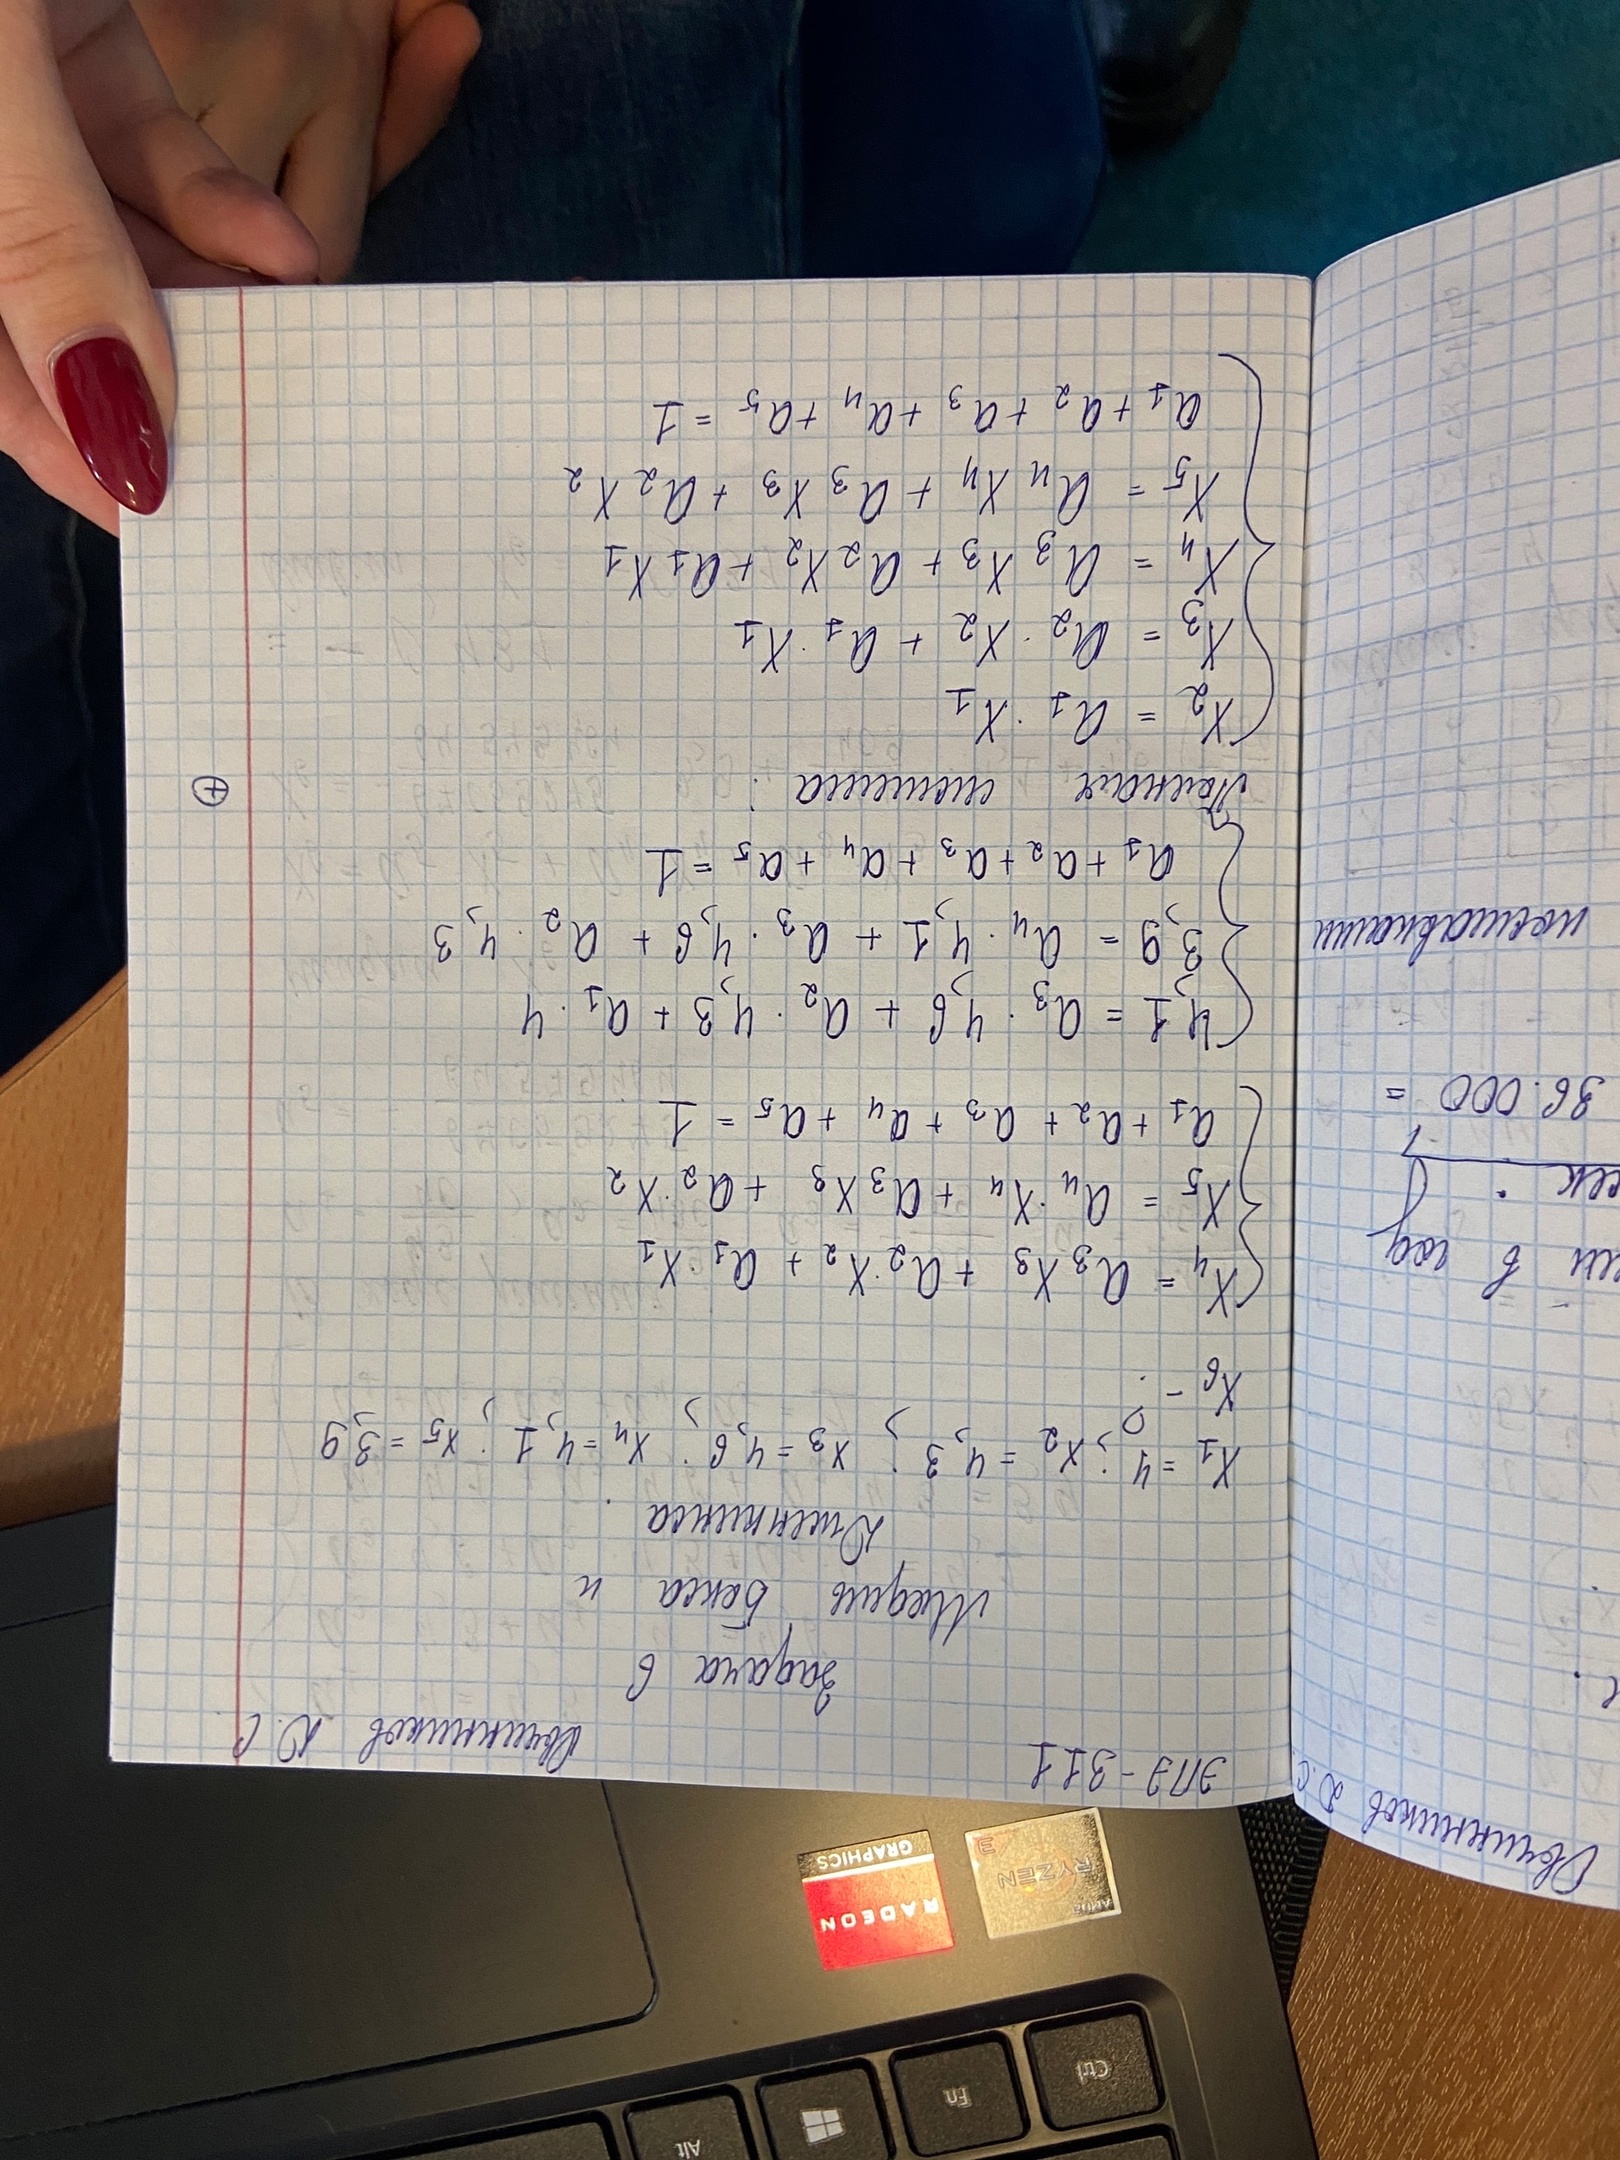 Alt
Fn
Ctrl
AMD
RYZEN
3
RADEON
GRAPHICS
Овчинников Д.С.
в год
36.000 =
поставками
ЭПЭ-311
Овчинников Д.С.
Задача 6
Модель Бокса и
Дженкинса.
X₁ = 4; X₂ = 4,3; X₃ = 4,6; X₄ = 4,1; X₅ = 3,9
X₆ - ?
X₄ = a₃ X₃ + a₂ · X₂ + a₁ · X₁
X₅ = a₄ · X₄ + a₃ X₃ + a₂ · X₂
a₁ + a₂ + a₃ + a₄ + a₅ = 1
4,1 = a₃ · 4,6 + a₂ · 4,3 + a₁ · 4
3,9 = a₄ · 4,1 + a₃ · 4,6 + a₂ · 4,3
a₁ + a₂ + a₃ + a₄ + a₅ = 1
Полная система:
X₂ = a₁ · X₁
X₃ = a₂ · X₂ + a₁ · X₁
X₄ = a₃ X₃ + a₂ X₂ + a₁ X₁
X₅ = a₄ X₄ + a₃ X₃ + a₂ X₂
a₁ + a₂ + a₃ + a₄ + a₅ = 1